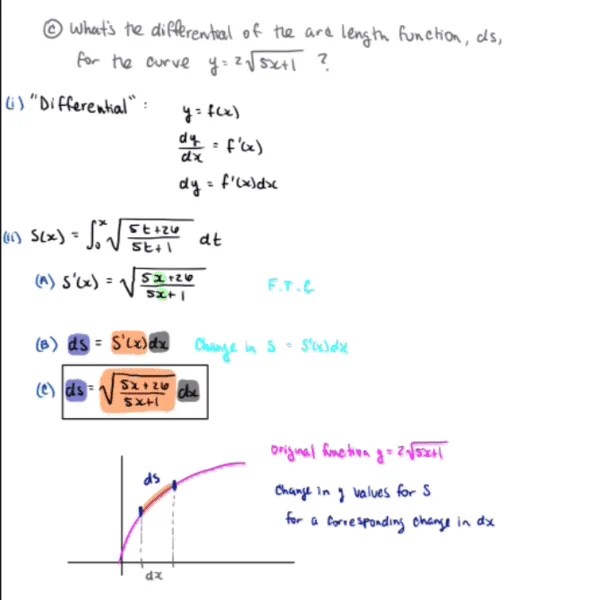 ⓒ What's the differential of the arc length function, ds,
for the curve y = 2√(5x+1) ?
(i) "Differential" : y = f(x)
dy/dx = f'(x)
dy = f'(x)dx
(ii) S(x) = ∫₀ˣ √((5t+26)/(5t+1)) dt
(A) S'(x) = √((5x+26)/(5x+1)) F.T.C
(B) ds = S'(x)dx Change in S = S'(x)dx
(C) ds = √((5x+26)/(5x+1)) dx
original function y = 2√(5x+1)
ds
Change in y values for S
for a corresponding change in dx
dx